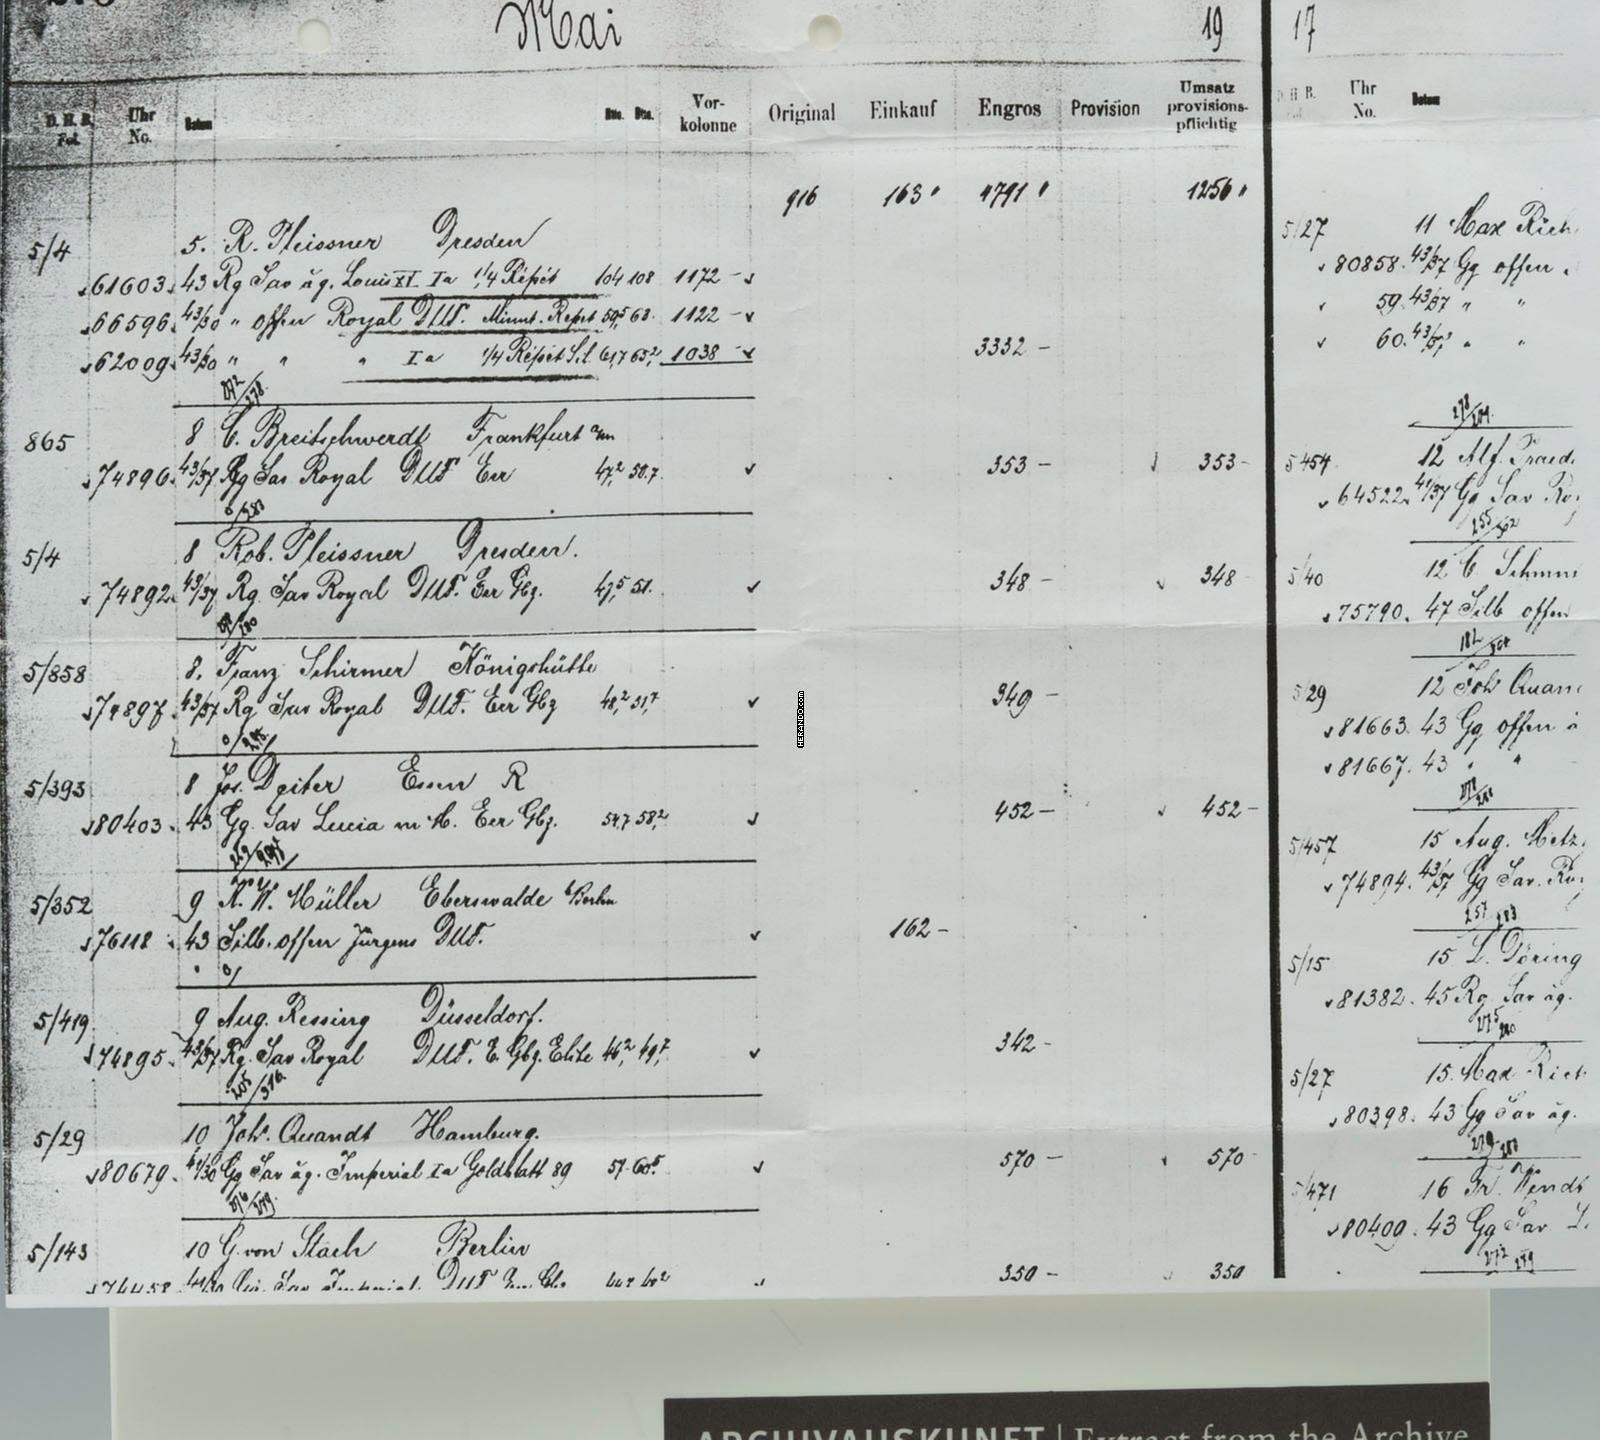 Mai 19 17
D. H. B. Fol. Uhr No. Datum Btto. Vorkolonne Original Einkauf Engros Provision Umsatz provisionspflichtig D. H. B. Fol. Uhr No. Datum
916 163 " 4791 " 1256 "
5/4 5. R. Pleissner Dresden
61603. 43 Rg Sav äg. Louis XI Ia 1/4 Répét 104 108 1172 -
66596. 43/30 " offen Royal DUF. Minut. Repet 59,5 63. 1122 -
62009. 43/30 " " " Ia 1/4 Répét S.S. 61,7 65,2 1038 - 3332 -
272/278
865 8 C. Breitschwerdt Frankfurt a/m
74896. 43/37 Rg Sav Royal DUF Err 47,2 50.7. 353 - 353 -
5/4 8 Rob. Pleissner Dresden.
74892. 43/37 Rg. Sav Royal DUF. Err Gbg. 47,5 51. 348 - 348 -
5/858 8. Franz Schirmer Königshütte
74897. 43/37 Rg Sav Royal DUF. Err Gbg 48,2 51,7 349 -
5/393 8 Jos. Deiter Essen R
80403. 43 Gg. Sav Lucia m. M. Err Gbg. 54,7 58,2 452 - 452 -
5/352 9 K. W. Müller Eberswalde b/Berlin
76118 43 Silb. offen Jürgens DUF. 162 -
5/419 9 Aug. Ressing Düsseldorf.
74895. 43/37 Rg. Sav Royal DUF. E. Gbg. Elite 46,2 49,7 342 -
5/29 10 Johs. Quandt Hamburg.
80679. 41/30 Gg Sav äg. Imperial Ia Goldblatt 89 57 60,5 570 - 570
5/143 10 G. von Stach Berlin
74458 41/30 Sav Imperial DUF 350 - 350
5/27 11 Max Rich
80858. 43/37 Gg offen
59. 43/37 " "
60. 43/37 " "
278/
5/454 12 Alf.
64522. 41/37 Gg Sav Ro
5/40 12 C.
75790. 47 Silb offen
5/29 12 Johs Quan
81663. 43 Gg offen ä
81667. 43 " "
5/457 15 Aug. Metz
74894. 43/37 Gg Sav. Ro
257/283
5/15 15 L. Döring
81382. 45 Rg Sav äg.
5/27 15. Max Rich
80398. 43 Gg Sav äg.
5/471 16 Fr. Wendt
80409. 43 Gg Sav L.
HERANDO.com
ARCHIVAUSKUNFT | Extract from the Archive